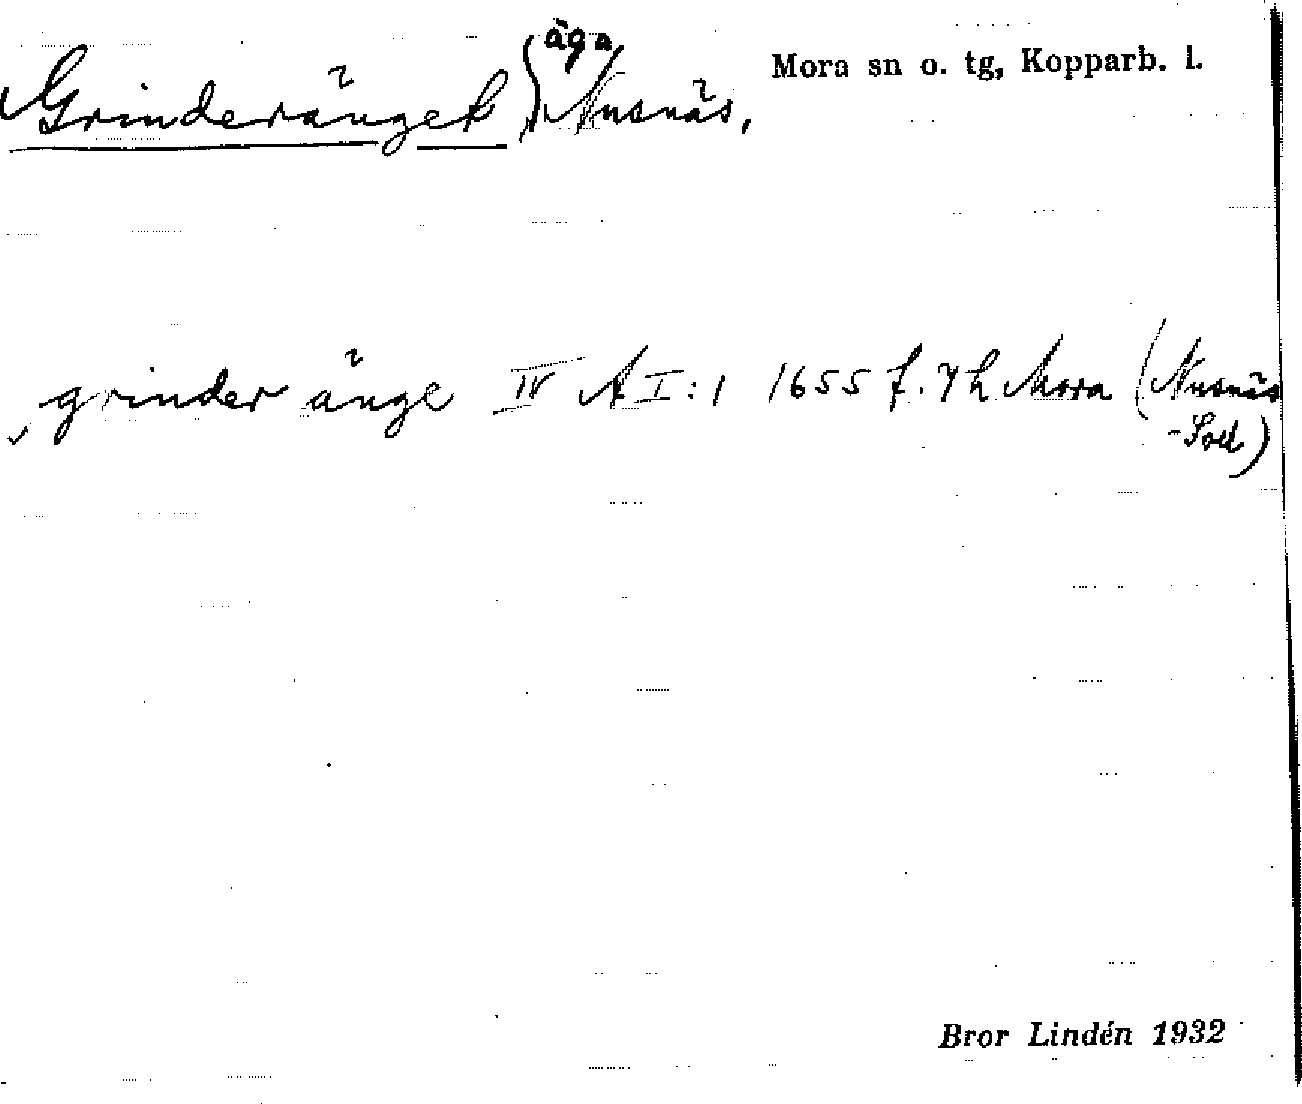 Grinderänget äga Nusnäs, Mora sn o. tg, Kopparb. l.
grinder änge IV A I:1 1655 f. 7 h Mora (Nusnäs
Bror Lindén 1932